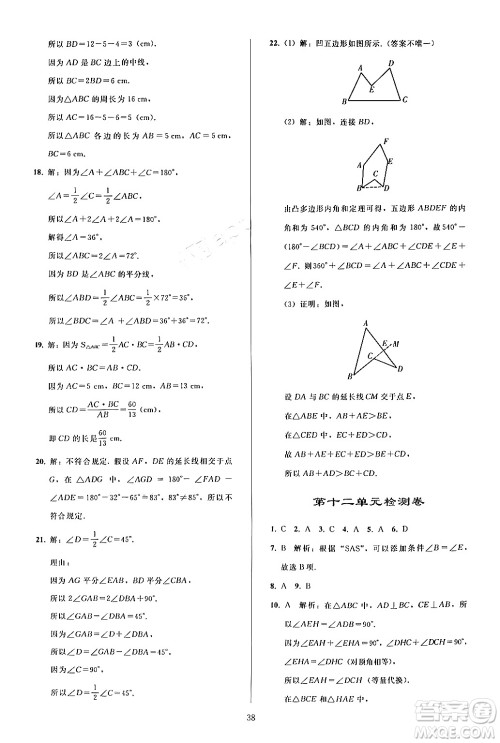 所以 BD=12-5-4=3(cm).
因为 AD 是 BC 边上的中线,
所以 BC=2BD=6 cm.
因为△ABC 的周长为 16 cm,
所以 AC=16-5-6=5(cm).
所以△ABC 各边的长为 AB=5 cm, AC=5 cm,
BC=6 cm.
18. 解:因为∠A+∠ABC+∠C=180°,
∠A=1/2∠C=1/2∠ABC,
所以∠A+2∠A+2∠A=180°,
解得∠A=36°,
所以∠ABC=∠C=2∠A=72°.
因为 BD 是∠ABC 的平分线,
所以∠ABD=1/2∠ABC=1/2×72°=36°,
所以∠BDC=∠A+∠ABD=36°+36°=72°.
19. 解:因为 S△ABC=1/2AC·BC=1/2AB·CD,
所以 AC·BC=AB·CD,
所以 CD=AC·BC/AB=60/13(cm),
即 CD 的长是 60/13 cm.
20. 解:不符合规定. 假设 AF, DE 的延长线相交于点
G, 在△ADG 中,∠ADG=180°-∠FAD-
∠ADE=54°≠50°,
所以不符合规定.
21. 解:∠D=1/2∠C=45°.
理由:
因为 AG 平分∠CAB, AD 平分∠CBA,
所以 2∠GAB=2∠D+∠CBA,
所以 2∠GAB-∠CBA=2∠D.
因为 2∠GAB=∠C+∠CBA,
所以 2∠GAB-∠CBA=∠C,
所以∠C=2∠D=90°,
所以∠D=1/2∠C=45°.
22. (1) 解:凹五边形如图所示. (答案不唯一)
A D E B C
(2) 解:如图, 连接 BD,
由凸多边形内角和定理可得, 五边形 ABDEF 的内
角和为 540°, △BCD 的内角和为 180°, 所以
∠BCD=∠A+∠ABC+∠CDE+∠E+
∠F-360°.
(3) 证明:如图,
设 DA 与 BC 的延长线 CM 交于点 E,
在△ABE 中,AB+AE>BE,
在△CDE 中,CE+DE>CD,
所以 AB+AE+CE+DE>BE+CD,
所以 AB+AD>BC+CD.
第十二单元检测卷
1. C 2. C 3. C 4. A 5. A 6. D
7. B 解析:根据“SAS”, 可添加∠B=∠E,
故选 B 项.
8. A 9. B
10. A 解析:在△ABC 中, AD⊥BC, CE⊥AB,
所以∠AEH=∠ADC=90°,
所以∠EAH+∠AHE=90°,
∠DHC+∠HCD=90°.
因为∠EHA=∠DHC(对顶角相等),
所以∠EAH=∠DCH(等量代换).
38